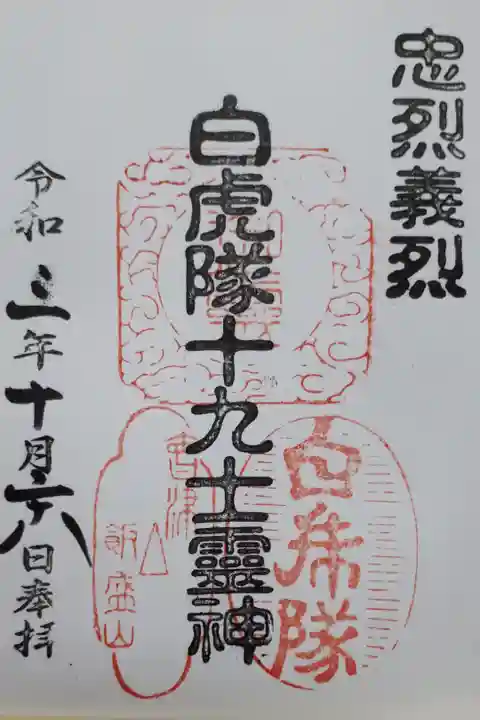 忠烈義烈
白虎隊十九士靈神
令和三年十月六日奉拝
會津
飯盛山
白虎隊